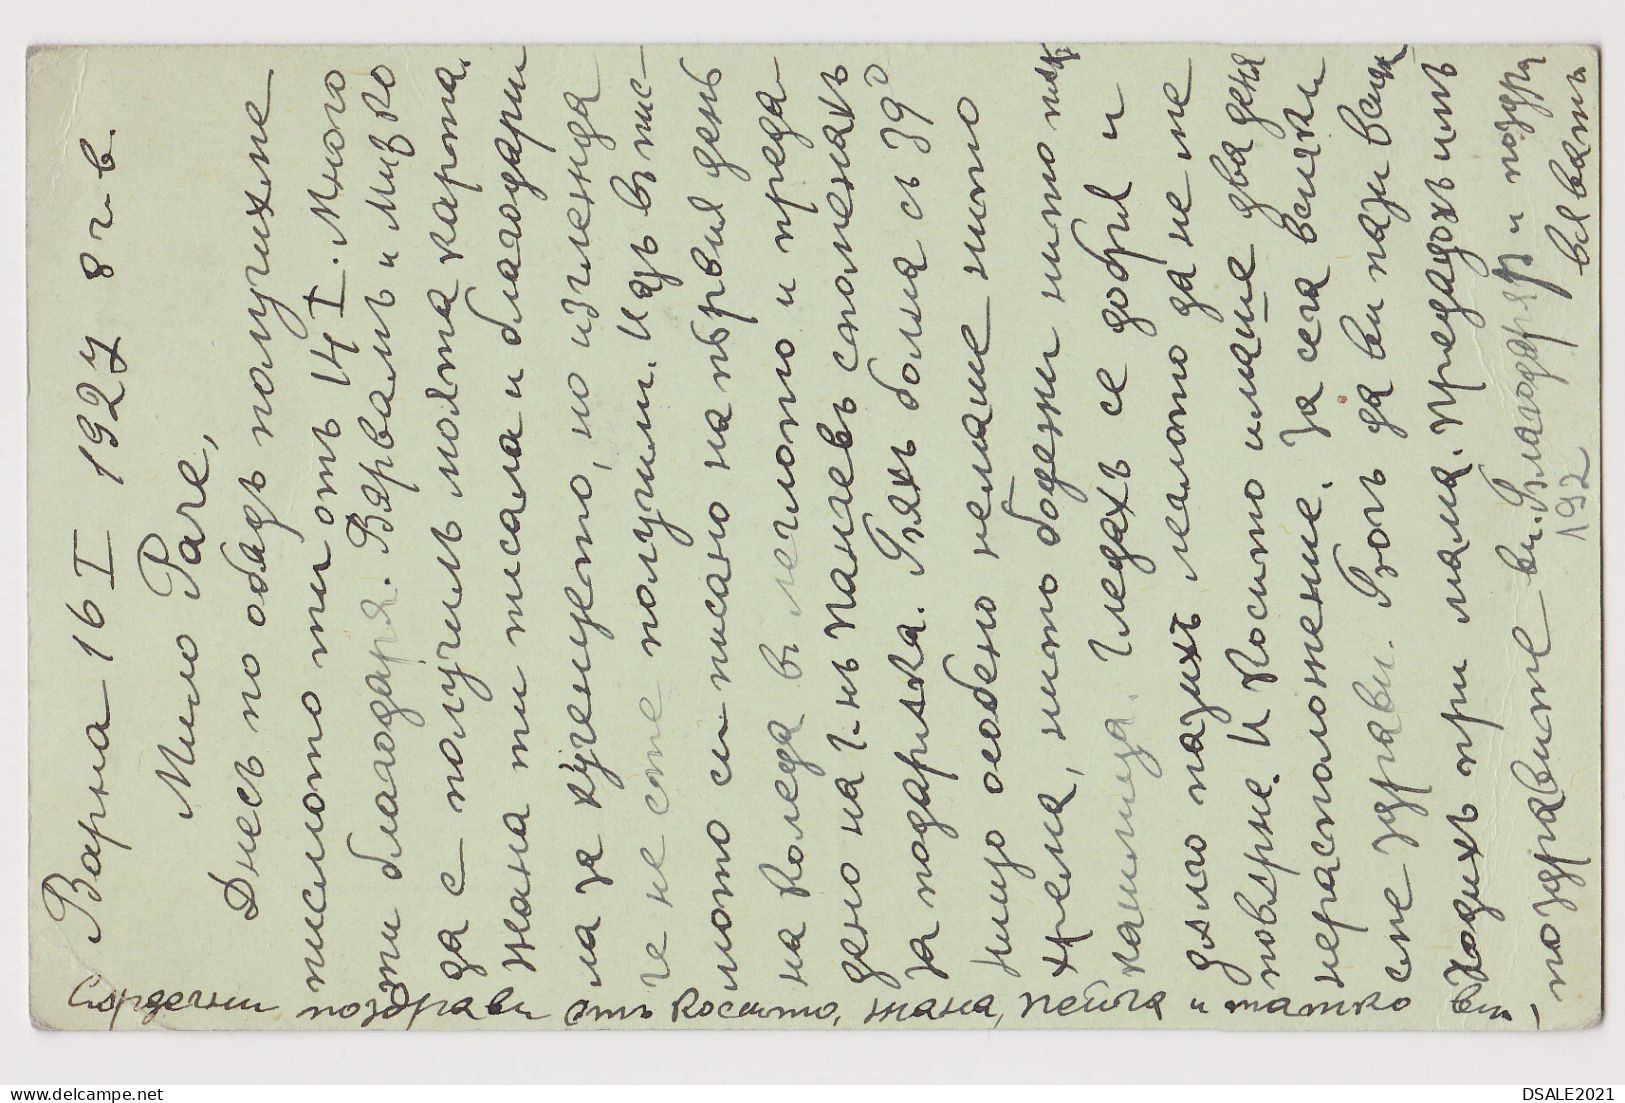 Варна 16 I 1927 8 ч. в.
Мило Раче,
Днесъ по обѣдъ получихме
писмото ти отъ 14 I. Много
ти благодаря. Вярвамъ и Мирко
да е получилъ моята карта.
Жана ти писала и благодари
ла за кученцето, но изглежда
че не сте получили. Азъ въ пис-
мото си писано на първия день
на Коледа въ леглото и преда
дено на г-нъ Панчевъ споменахъ
за подаръка. Бяхъ болна съ 39°
нищо особено немаше нито
хрема, нито бодежи нито
кашлица. Гледахъ се добрѣ и
дълго пазихъ леглото да не ме
повърне. И Косито имаше два деня
неразположение. За сега всички
сме здрави. Богъ да ви пази всички
Ходихъ при мама. Предадохъ имъ
поздравите ви. Благодарят и поздра
вяватъ
192
Сърдечни поздрави отъ Косито, жана, пейча и татко ви,
DSALE2021